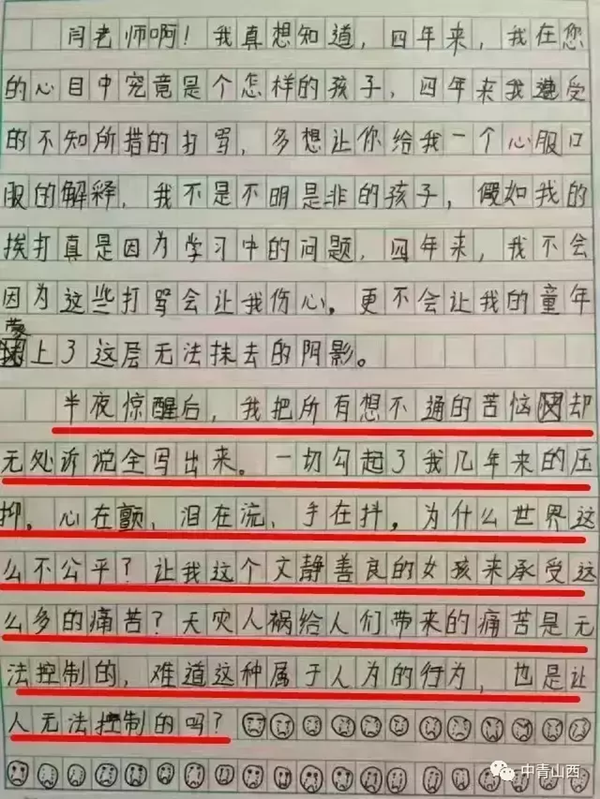 闫老师啊！我真想知道，四年来，我在您
的心目中究竟是个怎样的孩子，四年来我遭受
的不知所措的打骂，多想让你给我一个心服口
服的解释，我不是不明是非的孩子，假如我的
挨打真是因为学习中的问题，四年来，我不会
因为这些打骂会让我伤心。更不会让我的童年
蒙上了这层无法抹去的阴影。
半夜惊醒后，我把所有想不通的苦恼却
无处诉说全写出来。一切勾起了我几年来的压
抑。心在颤、泪在流、手在抖。为什么世界这
么不公平？让我这个文静善良的女孩来承受这
么多的痛苦？天灾人祸给人们带来的痛苦是无
法控制的，难道这种属于人为的行为，也是让
人无法控制的吗？
中青山西